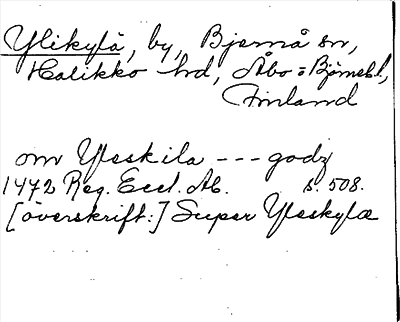 Ylikylä, by, Bjernå sn,
Halikko hd, Åbo=Björneb.l.,
Finland
om Yleskila --- godz
1472 Reg. Eccl. Ab. s. 508.
[överskrift:] Super Yleskylæ